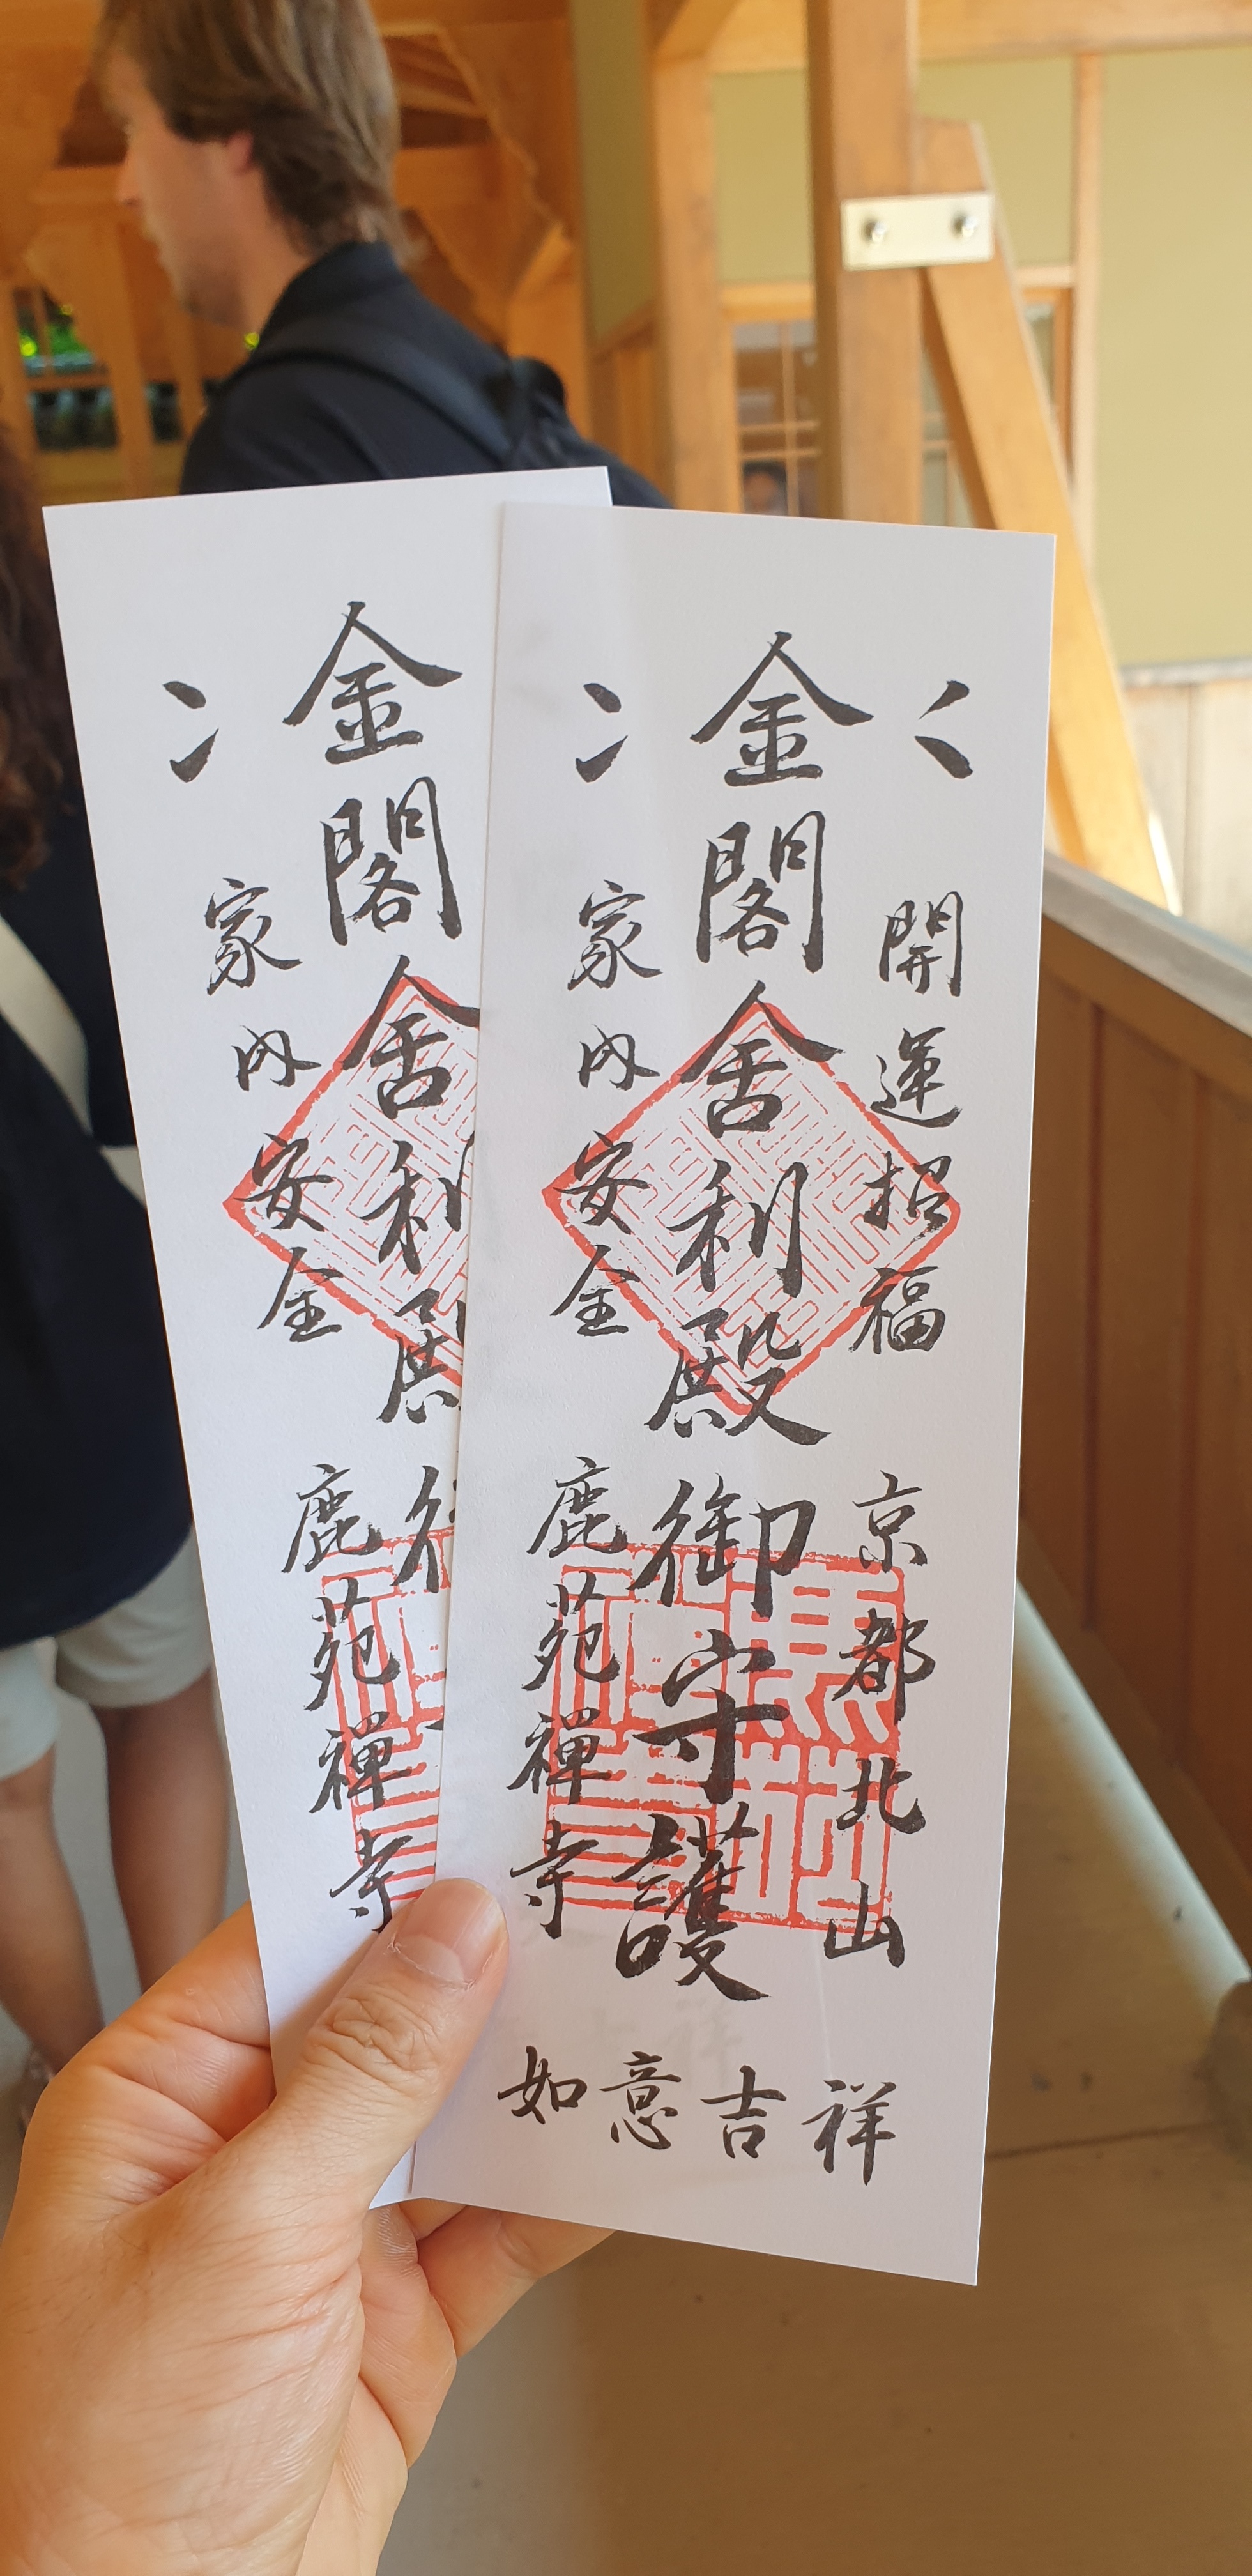 開運招福
京都北山
金閣舍利殿御守護
家内安全
鹿苑禪寺
如意吉祥
金閣舍利殿
家内安全
鹿苑禪寺